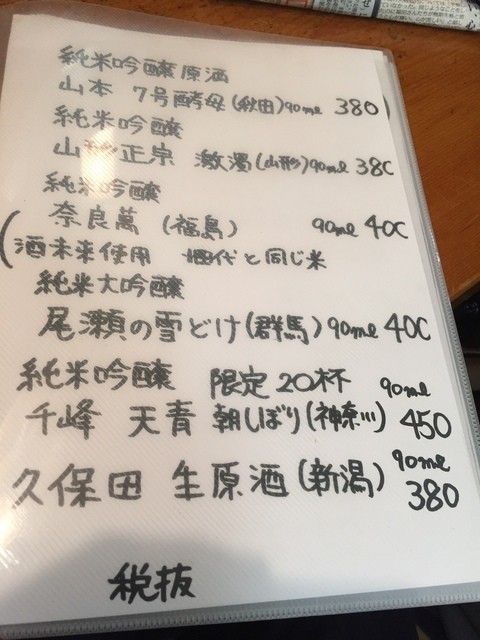 純米吟醸原酒
山本 7号酵母(秋田)90ml 380
純米吟醸
山形正宗 激濁(山形)90ml 380
純米吟醸
奈良萬 (福島) 90ml 400
(酒未来使用 十四代と同じ米
純米大吟醸
尾瀬の雪どけ(群馬)90ml 400
純米吟醸 限定20杯 90ml
千峰 天青 朝しぼり(神奈川) 450
久保田 生原酒(新潟) 90ml 380
税抜